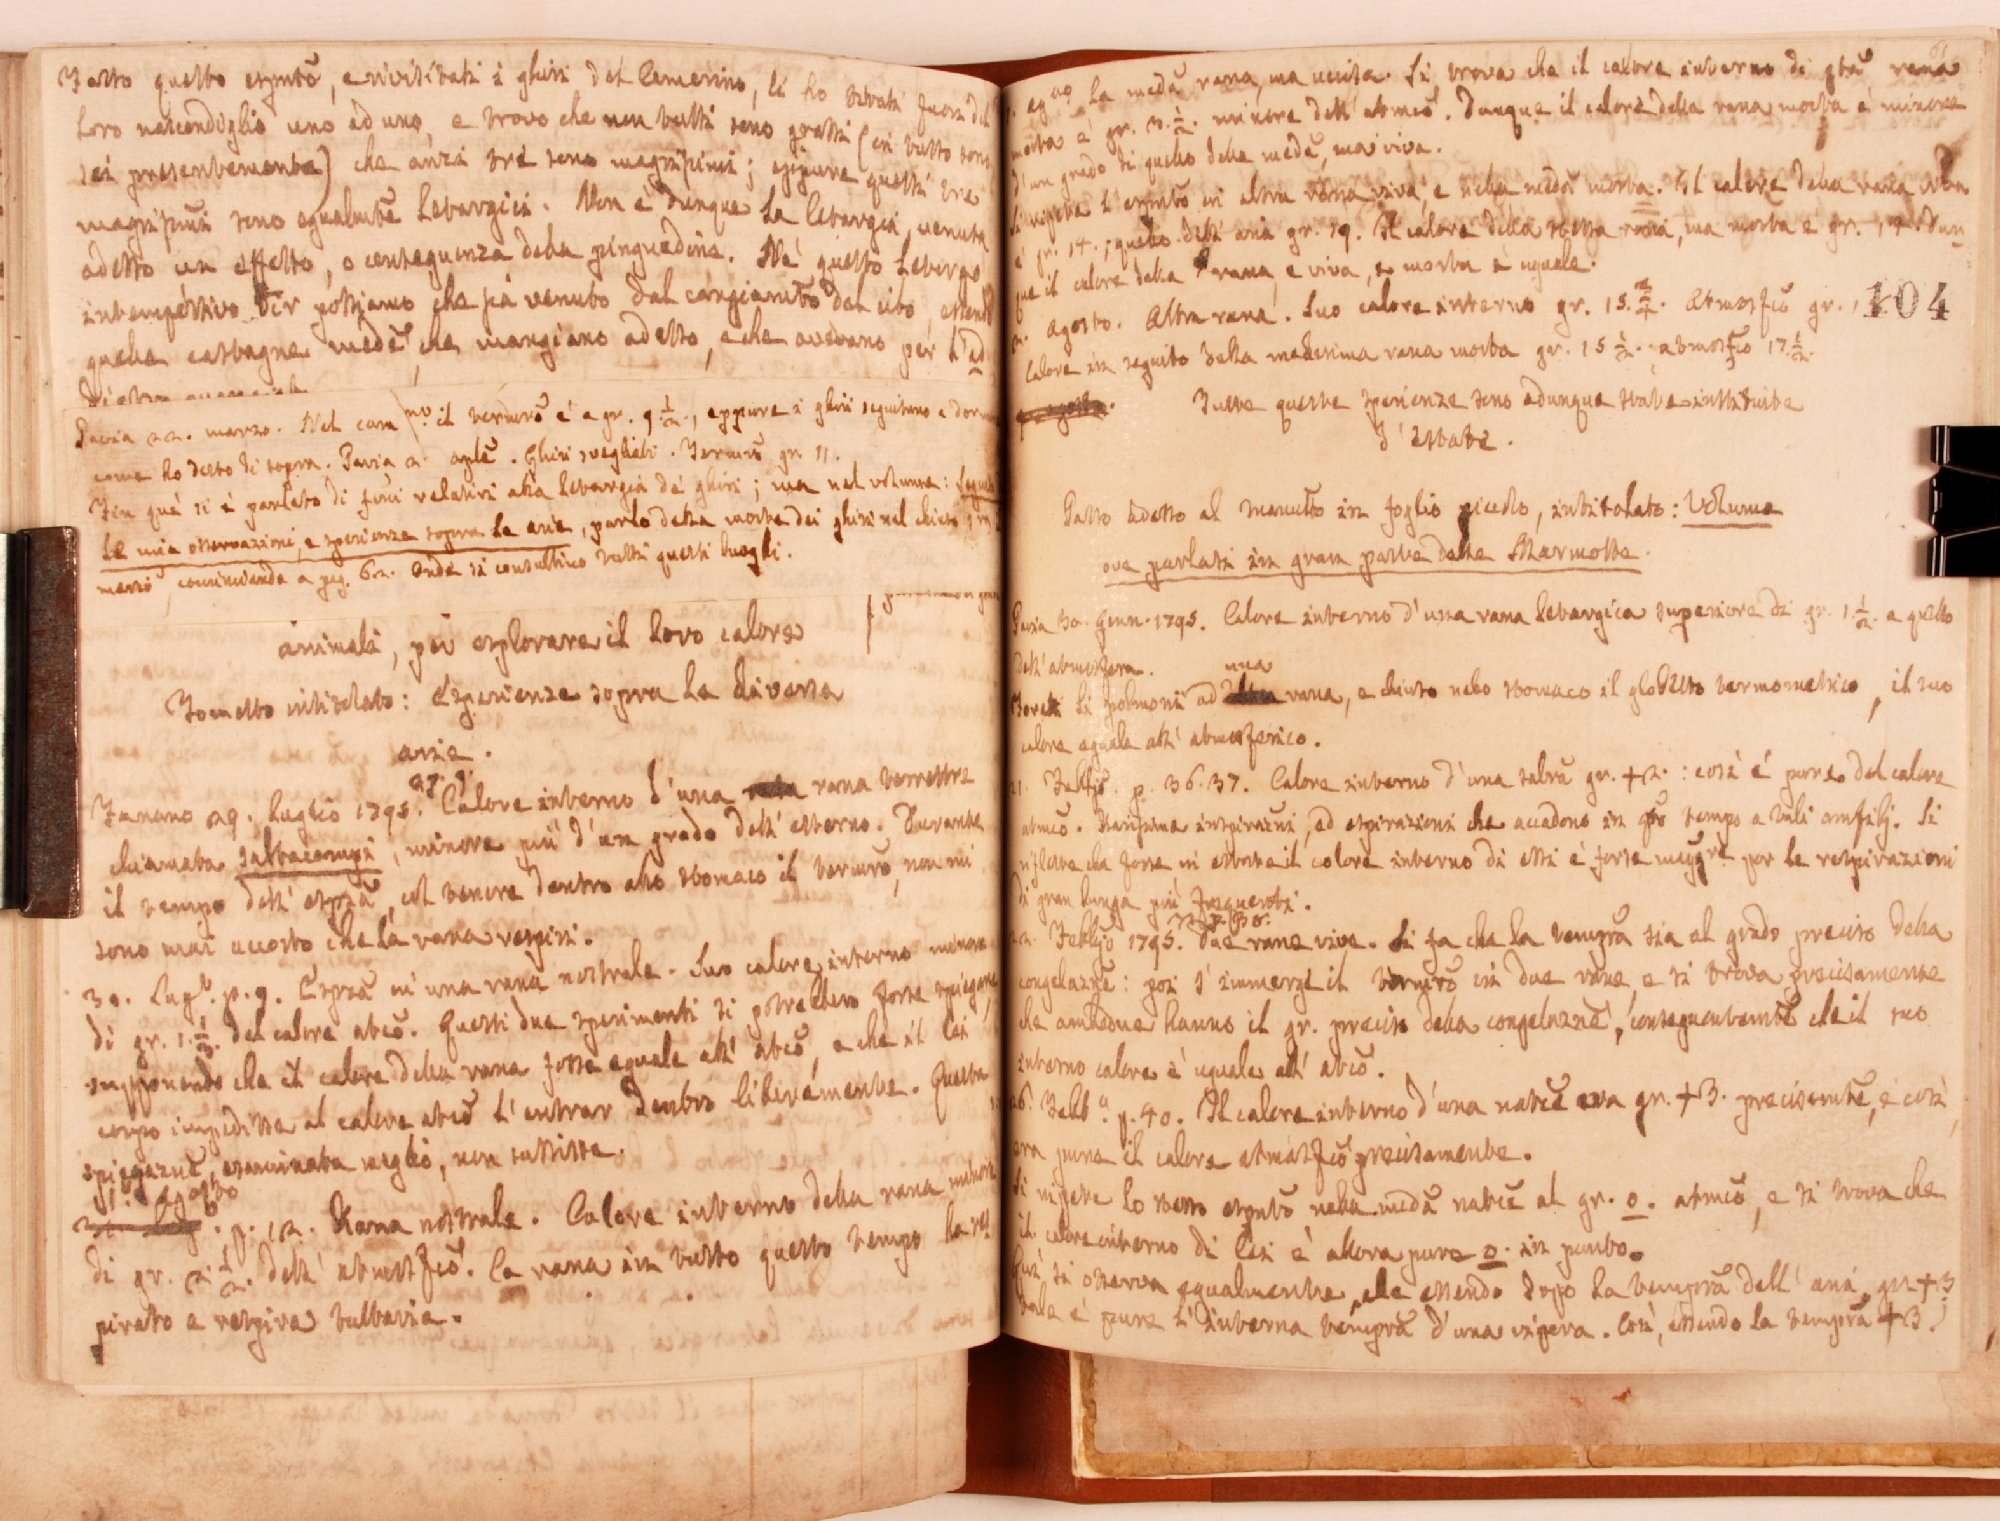 Fatto questo espmto, e rivisitati i ghiri del Camerino, li ho levati fuori del
loro nascondiglio uno ad uno, e trovo che non tutti sono grassi (in tutto sono
sei presentemente) che anzi tre sono magrissimi; eppure questi tre
magrissimi sono egualmte letargici. Non è dunque la letargia, venuta
adesso un effetto, o conseguenza della pinguedine. Nè questo letargo
intempestivo dir possiamo che sia venuto dal cangiamto del cibo, essendo
quelle castagne mede che mangiano adesso, e che avevano per l'ad
Pavia 22. marzo. Nel cam no. il termro è a gr. 9 1/2., eppure i ghiri seguitano a dormire
come ho detto di sopra. Pavia 2. aple. Ghiri svegliati. Termro gr. 11.
Fin quà si è parlato di fatti relativi alla letargia de' ghiri; ma nel volume: Seguito
le mie osservazioni, e sperienze sopra le arie, parlo della morte dei ghiri nel chiuso
marzo, cominciando a pag. 62. Onde si consultino tutti questi luoghi.
animali, per esplorare il loro calore
Tometto intitolato: Esperienze sopra le diverse
arie.
27. 9.
Fanano 29. Luglio 1795. Calore interno d'una rana terrestre
chiamata saltacampi, minore più d'un grado dell'esterno. Durante
il tempo dell'esprza, col tenere dentro allo stomaco il termro, non mi
sono mai accorto che la rana respiri.
30. Lugo. p. 9. Esprza in una rana nostrale. Suo calore interno minore
di gr. 1. 1/2. del calore atco. Questi due sperimenti si potrebbero forse spiegare,
supponendo che il calore della rana fosse eguale all'atco, e che il lei
corpo impedisse al calore atco l'entrar dentro liberamente. Questa
spiegazne, esaminata meglio, non sussiste.
1. Agosto
p. 12. Rana nostrale. Calore interno della rana minore
di gr. 2 1/2. dell'atmosfco. La rana in tutto questo tempo ha res
pirato e respira tuttavia.
la meda rana, ma uccisa. Si trova che il calore interno di qta rana
morta è gr. 3. 1/2. minore dell'atmco. Dunque il calore della rana morta è minore
d'un grado di quello della meda, ma viva.
Si ripete l'espmto in altra rana viva, e nella meda morta. Il calore della rana viva
è gr. 14.; quello dell'aria gr. 19. Il calore della stessa rana, ma morta è gr. 14. Dun
que il calore della rana, e viva, e morta è uguale.
2. agosto. Altra rana. Suo calore interno gr. 15. 3/4. Atmosfco gr. 1
104
Calore in seguito della medesima rana morta gr. 15 1/2. atmosfco 17. 1/2.
Tutte queste sperienze sono adunque state instituite
d'estate.
Passo adesso al manuto in foglio piccolo, intitolato: Volume
ove parlasi in gran parte delle Marmotte.
Pavia 30. Genn. 1795. Calore interno d'una rana letargica superiore di gr. 1. 1/2. a quello
dell'atmosfera.
una
Forati li polmoni ad rana, e chiuso nello stomaco il globetto termometrico, il suo
calore eguale all'atmosferico.
21. Febbjo. p. 36. 37. Calore interno d'una gr. +2.: così è pure del calore
atmco. Rarissime inspirazni, ed espirazioni che accadono in qto tempo a tali amfibj. Si
riflette che forse in estate il calore interno di essi è forse maggre per le respirazioni
di gran lunga più frequenti.
22. Febbjo 1795. Due rane vive. Si fa che la tempra sia al grado preciso della
congelazne: poi s'immerge il termro in due rane, e si trova precisamente
che ambedue hanno il gr. preciso della congelazne, conseguentemte che il suo
interno calore è uguale all'atco.
26. Febbo p. 40. Il calore interno d'una natce era gr. +3. precisamte, e così
era pure il calore atmosfco precisamente.
Si ripete lo stesso espmto nella meda natce al gr. 0. atmco, e si trova che
il calore interno di lei è allora pure 0. in punto.
Quì si osserva egualmente, che essendo dopo la tempra dell'aria gr. +3
tale è pure l'interna tempra d'una vipera. Così, essendo la tempra +3.